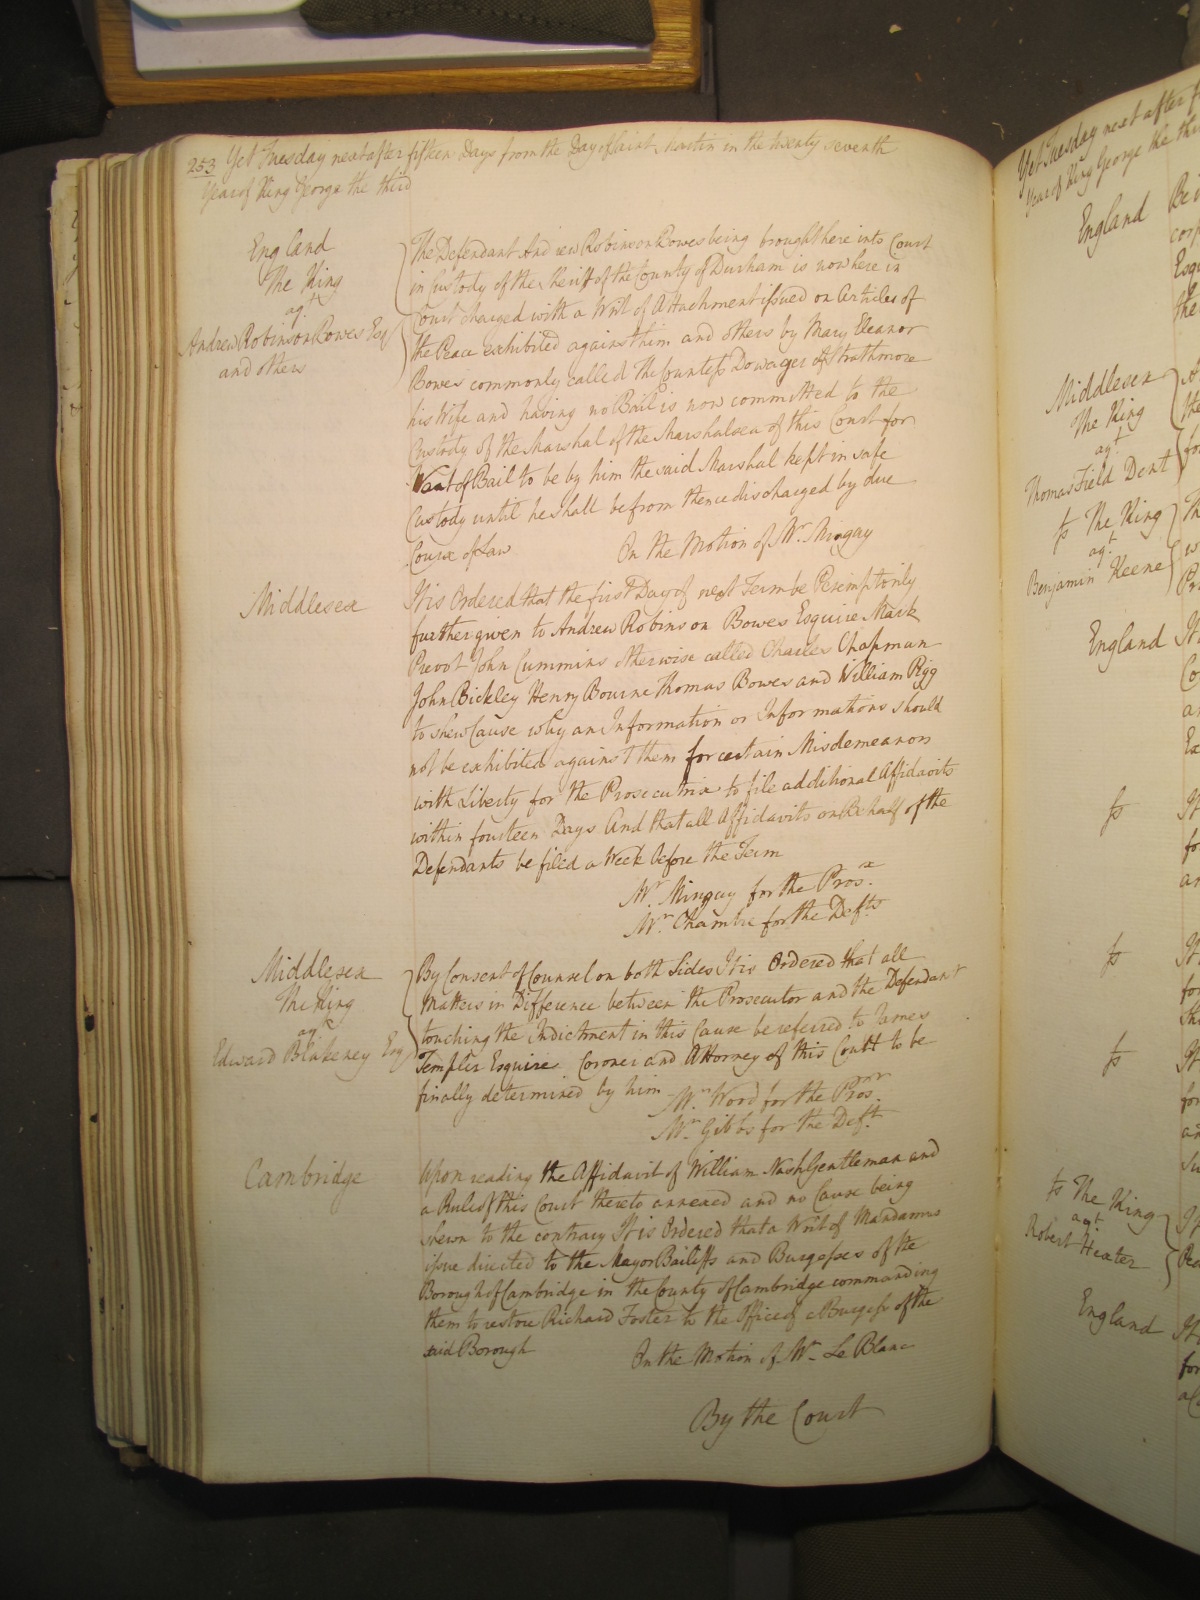 253 Yet Tuesday next after fifteen Days from the Day of Saint Martin in the twenty seventh
Year of King George the third
England
The King
agt.
Andrew Robinson Bowes Esqr
and others
The Defendant Andrew Robinson Bowes being brought here into Court
in Custody of the Sheriff of the County of Durham is now here in
Court charged with a Writ of Attachment issued on Articles of
the Peace exhibited against him and others by Mary Eleanor
Bowes commonly called the Countess Dowager of Strathmore
his Wife and having no Bail is now committed to the
Custody of the Marshal of the Marshalsea of this Court for
Want of Bail to be by him the said Marshal kept in safe
Custody until he shall be from thence discharged by due
Course of Law
On the Motion of Mr. Mingay
Middlesex
It is Ordered that the first Day of next Term be Peremptorily
further given to Andrew Robinson Bowes Esquire Mark
Prevot John Cummins otherwise called Charles Chapman
John Bickley Henry Bourne Thomas Bowes and William Pigg
to shew Cause why an Information or Informations should
not be exhibited against them for certain Misdemeanors
with Liberty for the Prosecutrix to file additional Affidavits
within fourteen Days And that all Affidavits on Behalf of the
Defendants be filed a Week before the Term
Mr. Mingay for the Prosx.
Mr. Chambre for the Defts.
Middlesex
The King
agt.
Edward Blakeney Esqr
By Consent of Counsel on both Sides It is Ordered that all
Matters in Difference between the Prosecutor and the Defendant
touching the Indictment in this Cause be referred to James
Templer Esquire Coroner and Attorney of this Court to be
finally determined by him
Mr. Wood for the Prosr.
Mr. Gibbs for the Deft.
Cambridge
Upon reading the Affidavit of William Nash Gentleman and
a Rule of this Court thereto annexed and no Cause being
shewn to the contrary It is Ordered that a Writ of Mandamus
issue directed to the Mayor Bailiffs and Burgesses of the
Borough of Cambridge in the County of Cambridge commanding
them to restore Richard Foster to the Office of a Burgess of the
said Borough
On the Motion of Mr. Le Blanc
By the Court
Yet Tuesday next after
Year of King George the
England
Middlesex
The King
agt.
Thomas Field Dent
ss The King
agt.
Benjamin Keene
England
ss
ss
ss
ss The King
agt.
Robert Heater
England